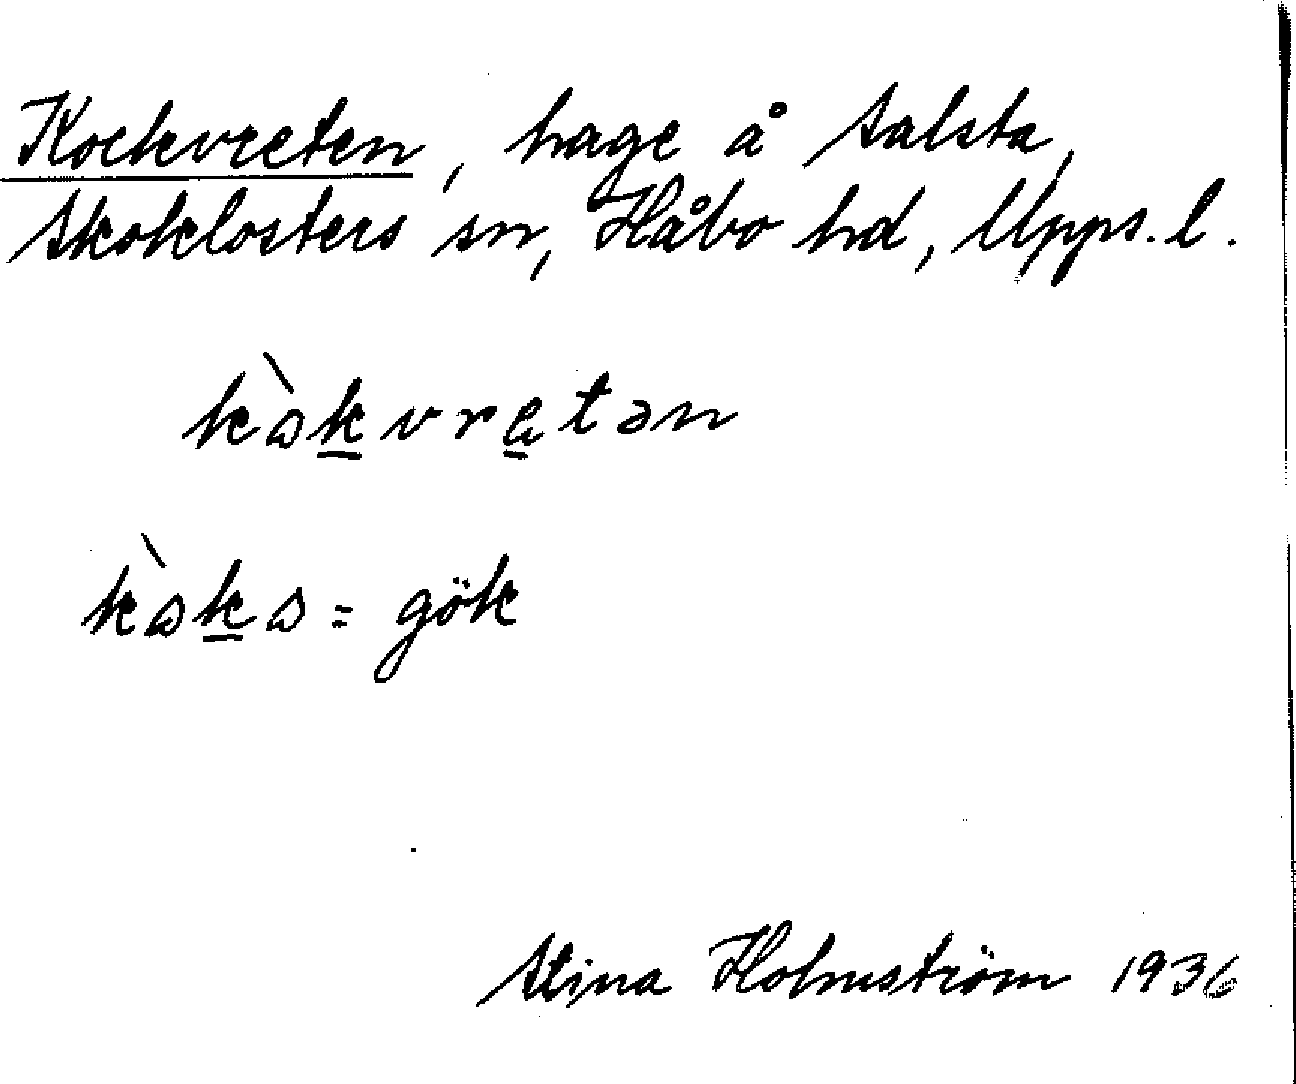 Kockvreten, hage å Salsta,
Skoklosters sn, Håbo hd, Upps. l.
kòkvretən
kòko = gök
Stina Holmström 1936